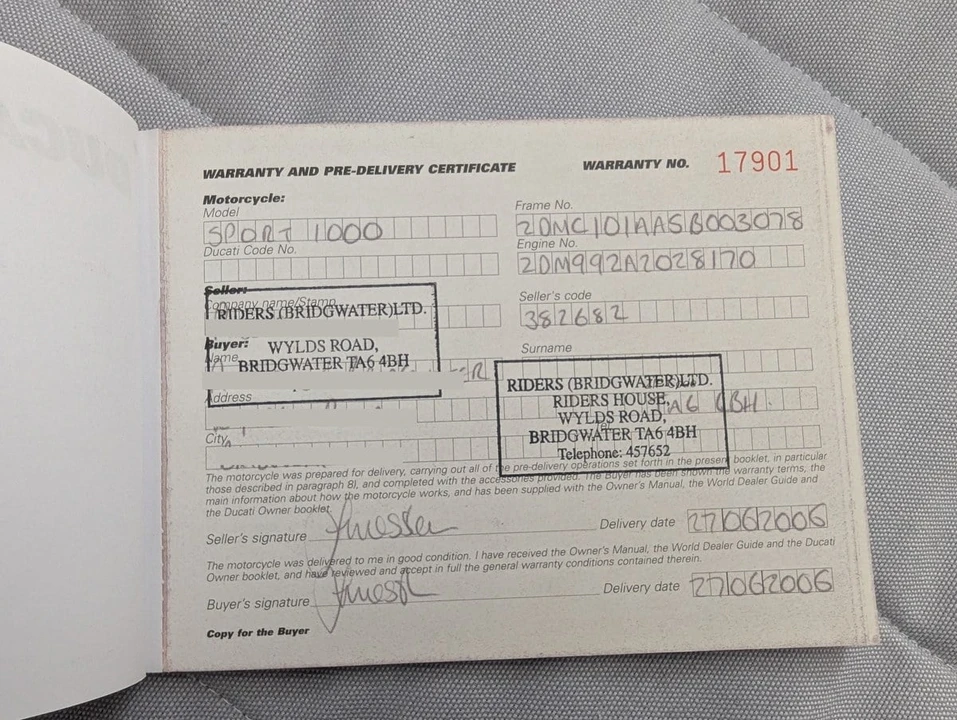 WARRANTY AND PRE-DELIVERY CERTIFICATE WARRANTY NO. 17901
Motorcycle:
Model
SPORT 1000
Frame No.
ZDMC101AASB003078
Ducati Code No.
Engine No.
ZDM992A2028170
Seller:
Company name/Stamp
RIDERS (BRIDGWATER) LTD.
WYLDS ROAD,
BRIDGWATER TA6 4BH
Seller's code
382682
Buyer:
Name
Surname
Address
RIDERS (BRIDGWATER) LTD.
RIDERS HOUSE,
WYLDS ROAD,
BRIDGWATER TA6 4BH
Telephone: 457652
City
The motorcycle was prepared for delivery, carrying out all of the pre-delivery operations set forth in the present booklet, in particular
those described in paragraph 8), and completed with the accessories provided. The Buyer has been shown the warranty terms, the
main information about how the motorcycle works, and has been supplied with the Owner's Manual, the World Dealer Guide and
the Ducati Owner booklet.
Seller's signature Delivery date 27/06/2006
The motorcycle was delivered to me in good condition. I have received the Owner's Manual, the World Dealer Guide and the Ducati
Owner booklet, and have reviewed and accept in full the general warranty conditions contained therein.
Buyer's signature Delivery date 27/06/2006
Copy for the Buyer